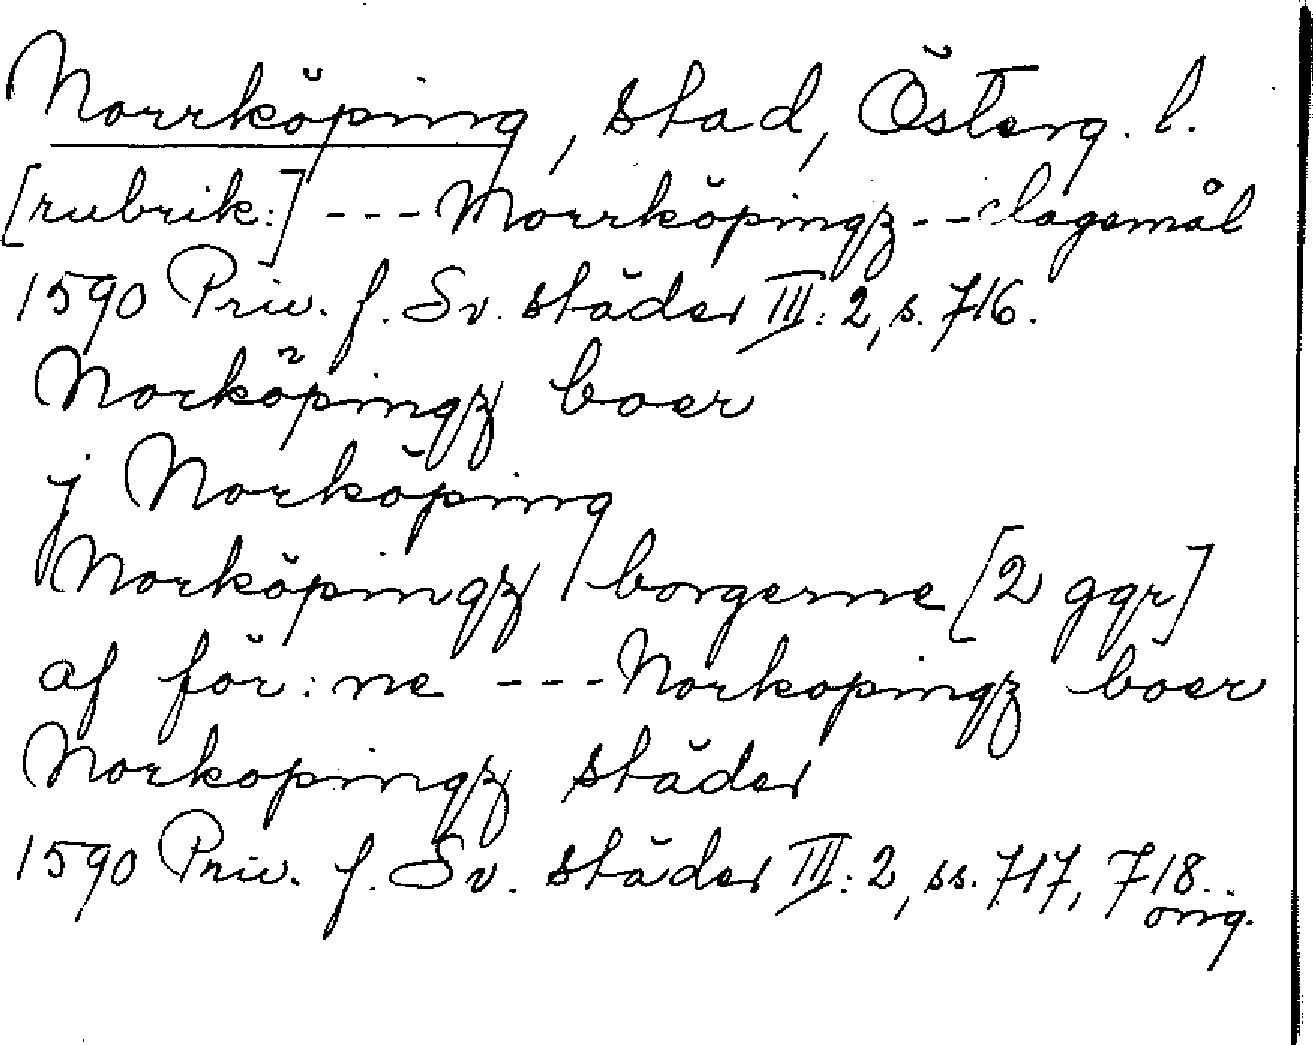 Norrköping, stad, Österg. l.
[rubrik:] --- Norrköpingz -- lagemål
1590 Priv. f. Sv. städer III: 2, s. 716.
Norköpingz boer
j Norköping
Norköpingz borgerne [2 ggr]
af för:ne --- Norkopingz boer
Norkopingz städer
1590 Priv. f. Sv. städer III: 2, ss. 717, 718.
orig.